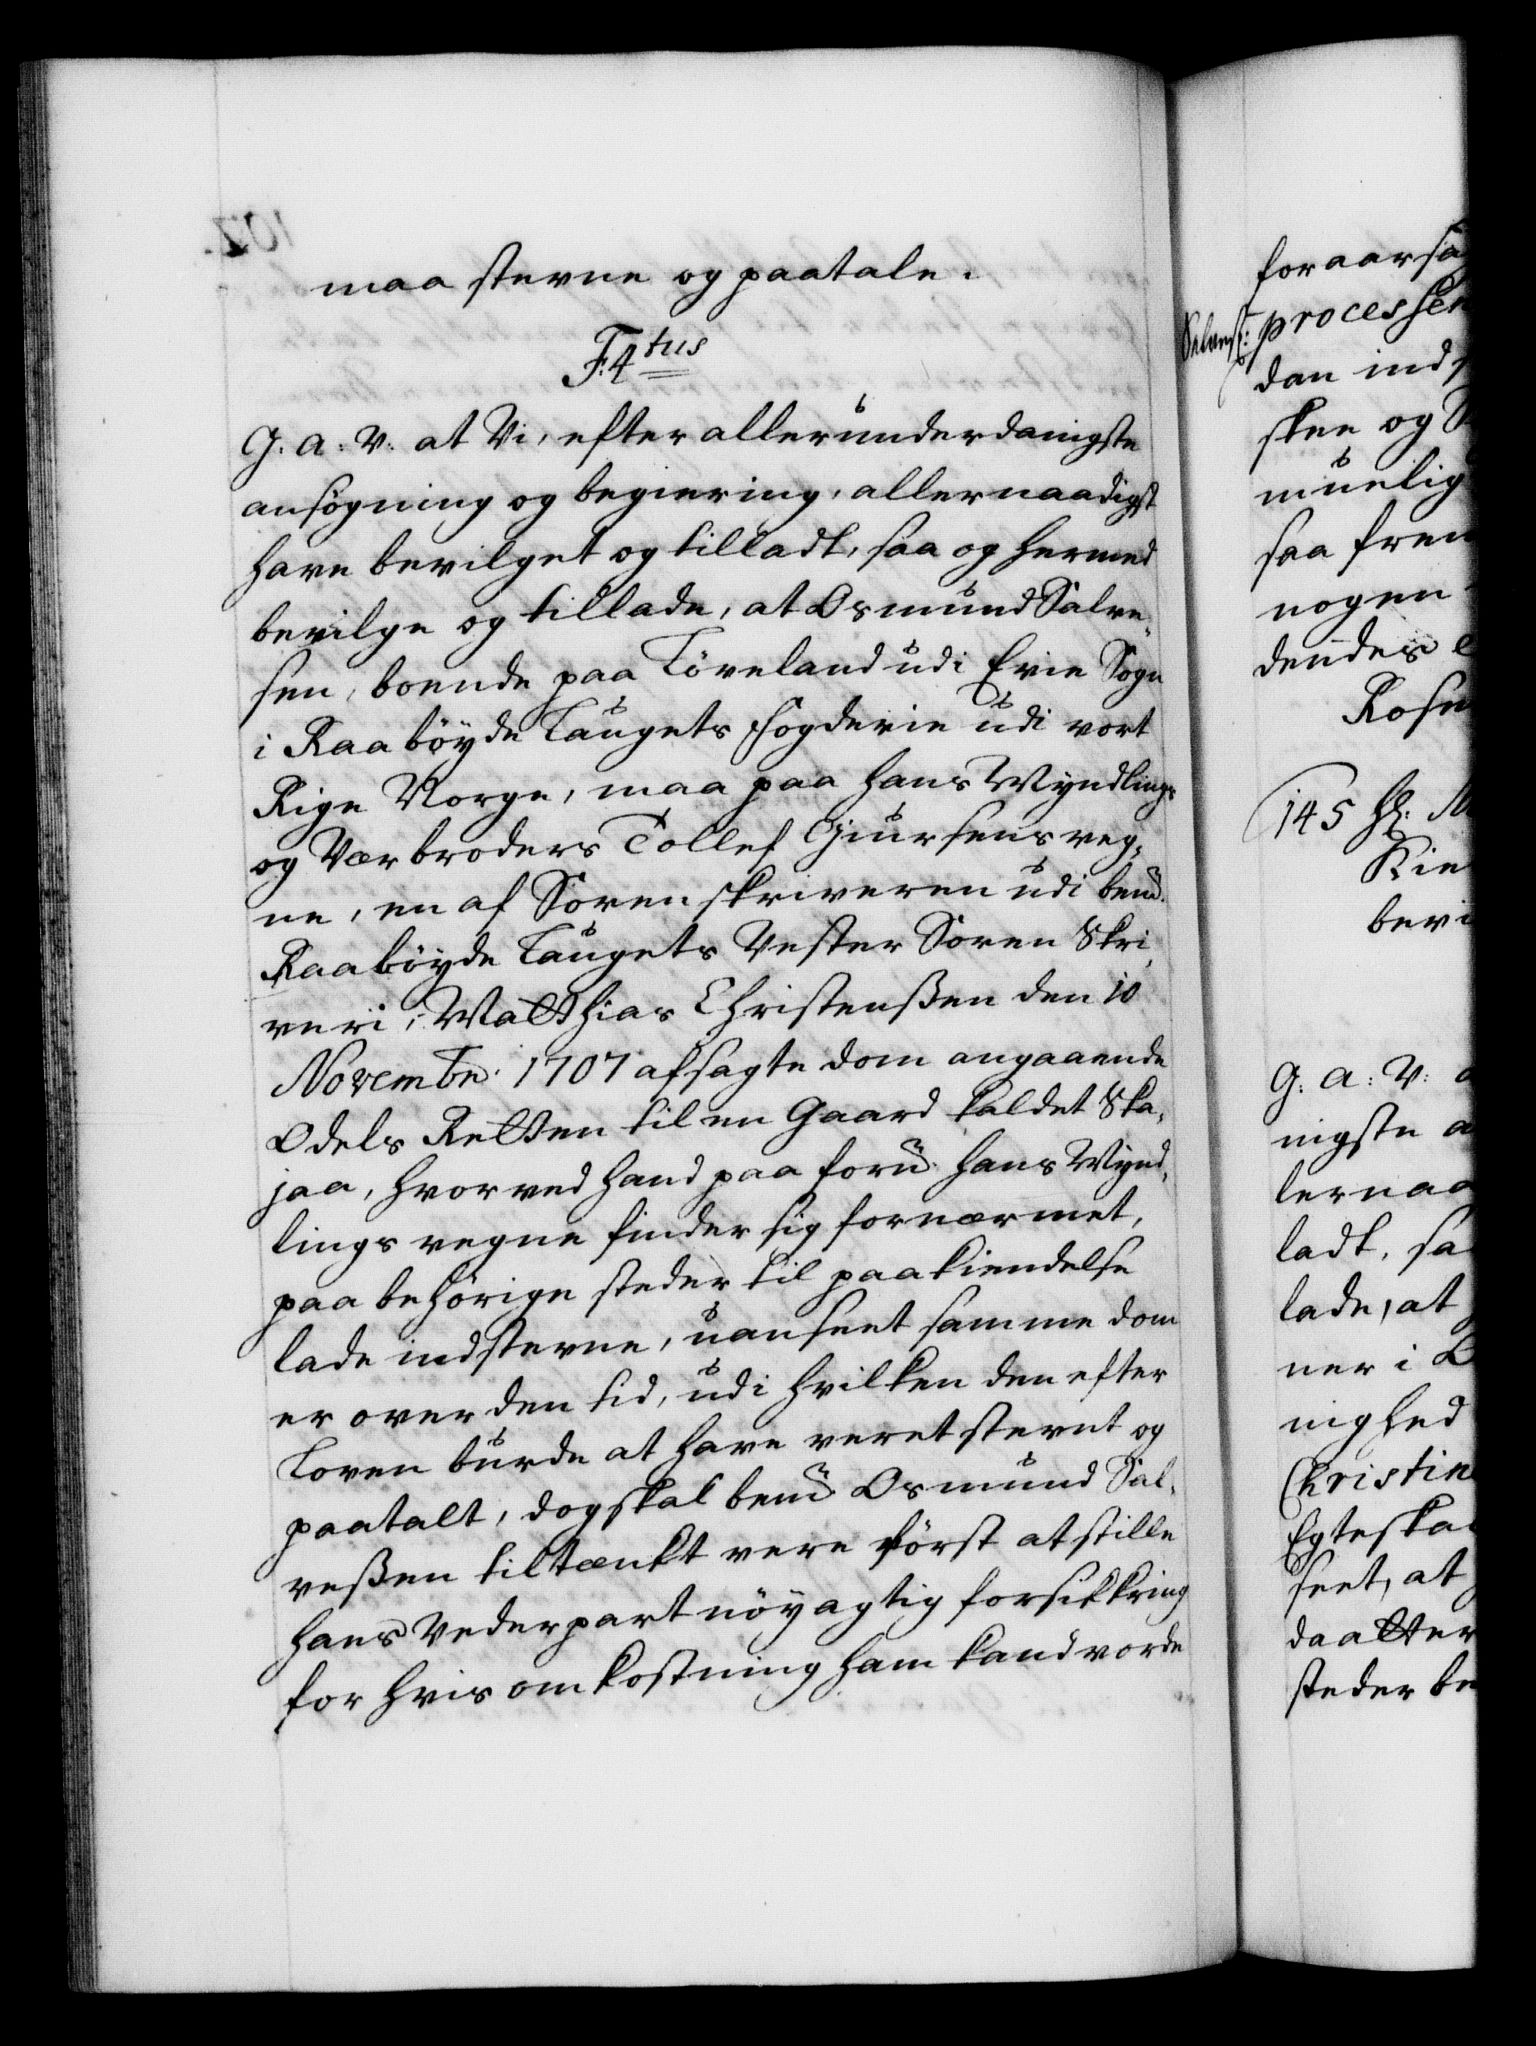 maa stevne og paatale.
F. 4tus
G. A: V: at Vi, efter allerunderdanigste
ansøgning og begiering, allernaadigst
have bevilget og tilladt, saa og hermed
bevilge og tillade, at Osmund Salve,,
sen, boende paa Töveland udi Evie Sogn
i Raabøyde Laugets Fogderie udi vort
Rige Norge, maa paa hans Myndlings
og Værbroders Tollef Giursens veg,,
ne, en af Sorenskriveren udi bem:
Raabøyde Laugets Vester Soren Skri,,
veri, Matthias Christenßen den 10
Novembr. 1707 afsagte dom angaaende
Odels Retten til en Gaard kaldet Ska,,
jaa, hvorved hand paa form: hans Mynd,,
lings vegne finder sig fornærmet,
paa behörige steder til paakiendelse
lade indstevne, uanseet samme dom
er over den tid, udi hvilken den efter
Loven burde at have veret stevnt og
paatalt, dog skal bem: Osmund Sal,,
veßen tiltænkt vere først at stille
hans Vederpart nöyagtig forsikkring
for hvis omkostning ham kand vorde
foraarsa
processen
dan ind
skee og
muelig
saa frem
nogen
dendes
Rosen
145 Hr. M
Kie
bevi
G: A: V: a
nigste a
lernaa
ladt, sa
lade, at
ner i
nighed
Christin
Egteska
seet, at
daatter
steder be